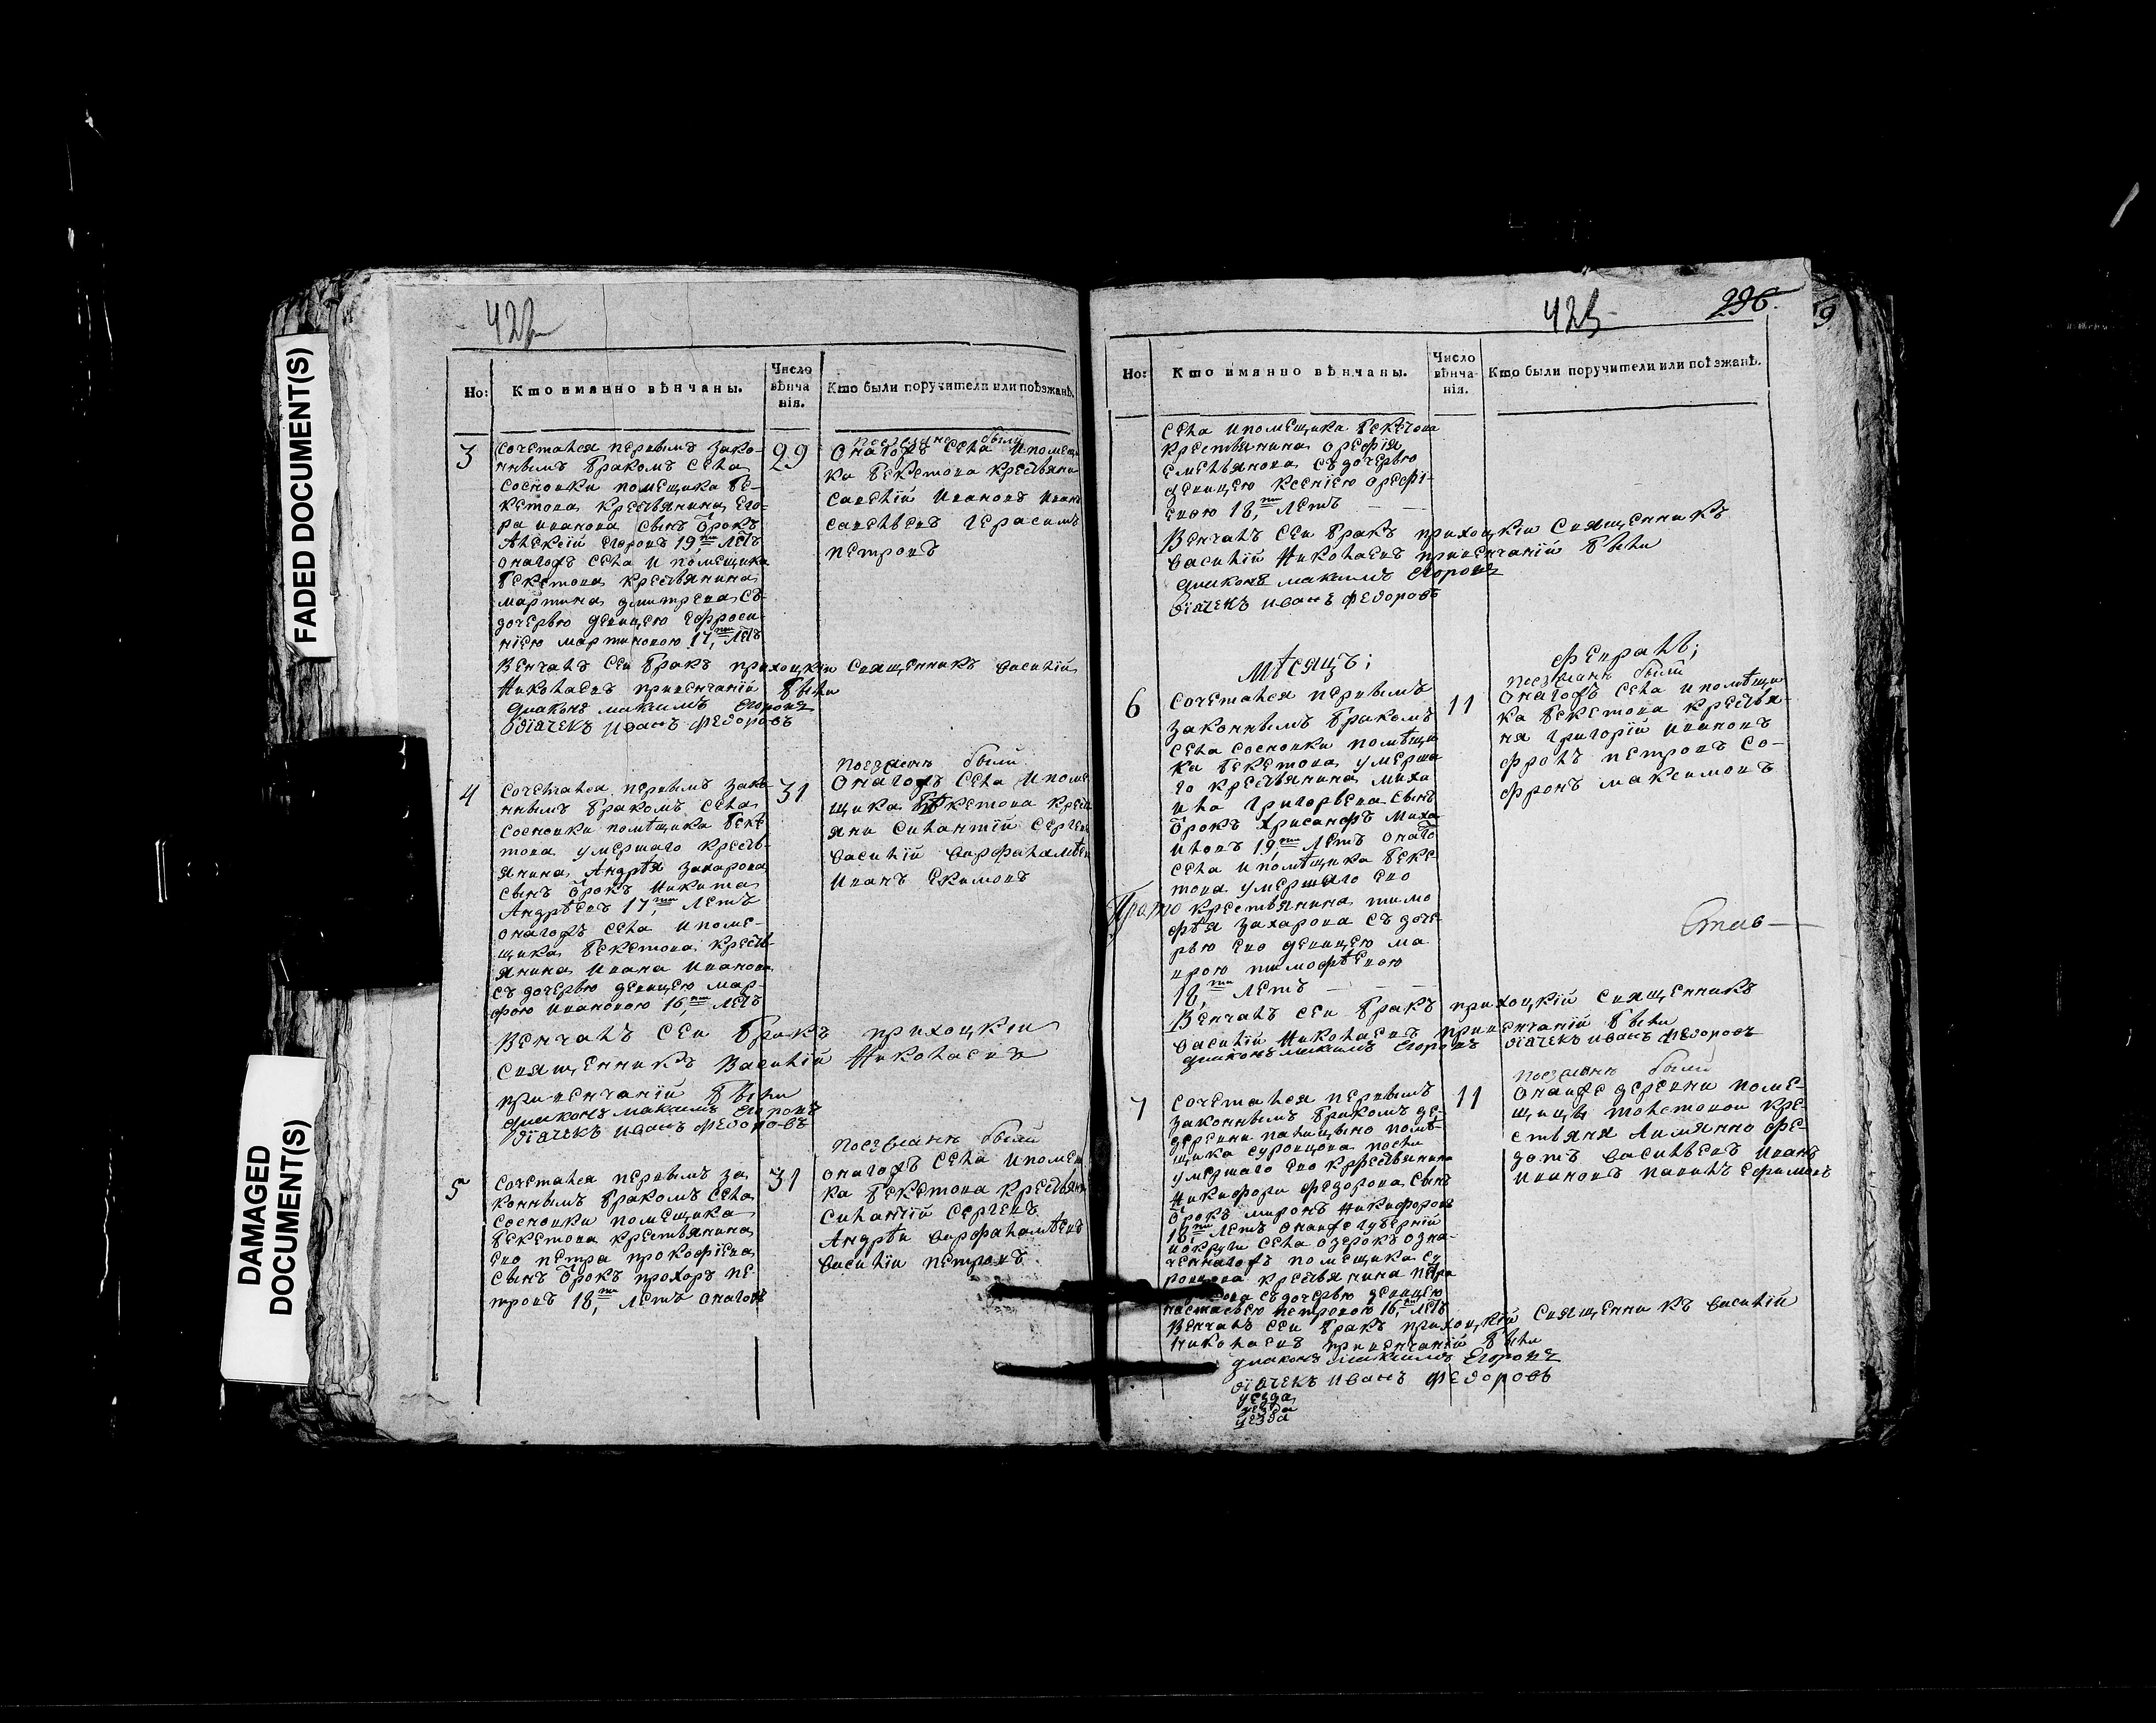 FADED DOCUMENT(S)
DAMAGED
DOCUMENT(S)
Но:
Кто имянно вѣнчаны.
Число
вѣнча
нія.
Кто были поручители или поѣзжанѣ.
3
Сочетался первымъ зако-
ннымъ бракомъ села
Сосновки помещика Бе-
кетова крестьянина Его-
ра Иванова сынъ отрокъ
Алексѣй Егоровъ 19,ти летъ
онагожъ села и помещика
Бекетова крестьянина
Мартина Дмитрева съ
дочерью девицею Ефроси-
ніею Мартиновою 17,ти летъ
29
поезжанѣ были
Онагожъ села и помещи
ка Бекетова крестьяни
Савелій Ивановъ Иванъ
Савельевъ Герасимъ
Петровъ
Венчалъ сеи бракъ прихоцкіи священникъ Василій
Николаевъ привенчаніи были
диаконъ Максимъ Егоровъ
дїачекъ Иванъ Федоровъ
4
Сочетался первымъ зако
ннымъ бракомъ села
Сосновки помѣщика Беке
това умершаго кресть-
янина Андрѣя Захарова
сынъ отрокъ Никита
Андрѣевъ 17,ти летъ
онагожъ села и поме-
щика Бекетова кресть
янина Ивана Иванова
съ дочерью девицею Мар-
фою Ивановою 16,ти летъ
31
поезжанѣ были
Онагожъ села и поме
щика Бекетова крест
яни Силантій Сергеи
Василій Варфаламѣев
Иванъ Екимовъ
Венчалъ сеи бракъ прихоцкіи
священникъ Василій Николаевъ
привенчаніи были
диаконъ Максимъ Егоровъ
дїачекъ Иванъ Федоровъ
5
Сочетался первымъ за
коннымъ бракомъ села
Сосновки помещика
Бекетова крестьянина
ево Петра Прокофіева
сынъ отрокъ Прохоръ Пе
тровъ 18,ти летъ онагож
31
поезжанѣ были
онагожъ села и помещи
ка Бекетова крестьян
Силантій Сергеевъ
Андрѣи Варфаламѣевъ
Василіи Петровъ
296.
Но:
Кто имянно вѣнчаны.
Число
вѣнча-
нія.
Кто были поручители или поѣзжанѣ.
села и помещика Бекетова
крестьянина Орефія
Емельянова съ дочерью
девицею Ксеніею Орефі-
евою 18,ти летъ
Венчалъ сеи бракъ прихоцкіи священникъ
Василій Николаевъ привенчаній были
диаконъ Максимъ Егоровъ
дїачекъ Иванъ Федоровъ
Мѣсяцъ;
Февраль;
6
Сочетался первымъ
законнымъ бракомъ
села Сосновки помѣщи
ка Бекетова умерша
го крестьянина Миха
ила Григорьева сынъ
отрокъ Хрисанфъ Миха
иловъ 19,ти летъ онаго
села и помѣщика Беке
това умершаго ево
крестьянина Тимо
фѣя Захарова съ доче-
рью ево девицею Ма
врою Тимофѣевою
18,ти летъ
11
поезжанѣ были
Онагожъ села и помѣщи
ка Бекетова крестья-
ня Григорій Ивановъ
Фролъ Петровъ Со-
фронъ Максимовъ
Став
Венчалъ сеи бракъ прихоцкій священникъ
Василій Николаевъ привенчаніи были
диаконъ Максимъ Егоровъ дїачекъ Иванъ Федоровъ
7
Сочетался первымъ
законнымъ бракомъ де-
деревни Палицыно помѣ-
щика Суровцова посли
умершаго ево крестьянина
Никифора Федорова сынъ
отрокъ Миронъ Никифоровъ
18,ти летъ онаиже губерніи
и округи села Озерокъ озна-
ченнагожъ помещика Су
ровцова крестьянина Петра
съ дочерью девицею
Настасьею Петровою 16,ти летъ
11
поезжанѣ были
Онаиже деревни поме-
щицы Толстовои кре-
стьяня Аимянно Фе-
дотъ Васильевъ Иванъ
Ивановъ Павилъ Ефимовъ
Венчалъ сеи бракъ прихоцкій священникъ Василій
Николаевъ привенчаніи были
диаконъ Максимъ Егоровъ
дїачекъ Иванъ Федоровъ
уезда
уезда
уезда